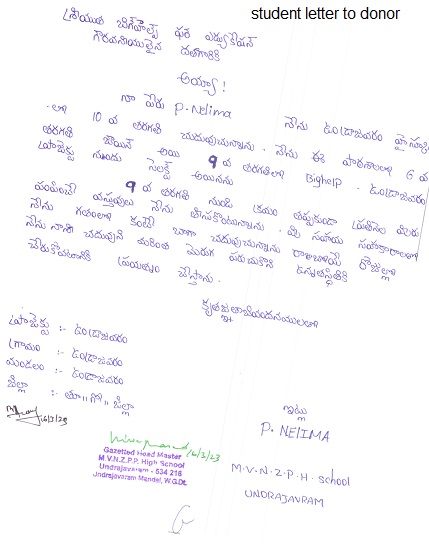 student letter to donor
శ్రీయుత బిగ్‌హెల్ప్ ఫర్ ఎడ్యుకేషన్
గౌరవనీయులైన దాతగారికి
అయ్యా!
నా పేరు P. Nelima నేను ఉండ్రాజవరం హైస్కూల్
లో 10 వ తరగతి చదువుచున్నాను. నేను ఈ పాఠశాలలో 6 వ
తరగతి జాయిన్ అయి 9 వ తరగతిలో Bighelp - ఉండ్రాజవరం
ప్రాజెక్టు నుండు సెలక్ట్ అయినను
9 వ తరగతి నుండి క్రమం తప్పకుండా ప్రతినెల మీరు
పంపించే వస్తువులు నేను తీసుకొంటున్నాను. మీ సహయ సహకారాలతో
నేను గతంలో కంటే బాగా చదువుచున్నాను. రాబోయే రోజుల్లో
నేను నాశా చదువుని మరింత మెరుగ పరుచుకొని ఉన్నతస్థితికి
చేరుకోవటానికి ప్రయత్నం చేస్తాను.
కృతజ్ఞతాభివందనములతో
ప్రాజెక్టు :- ఉండ్రాజవరం
గ్రామం :- ఉండ్రాజవరం
మండలం :- ఉండ్రాజవరం
జిల్లా :- తూ||గో|| జిల్లా
ఇట్లు
P. NELIMA
M.V.N.Z.P.H. school
UNDRAJAVRAM
16/3/23
16/3/23
Gazetted Head Master
M.V.N.Z.P.P. High School
Undrajavaram - 534 216
Undrajavaram Mandal, W.G.Dt.